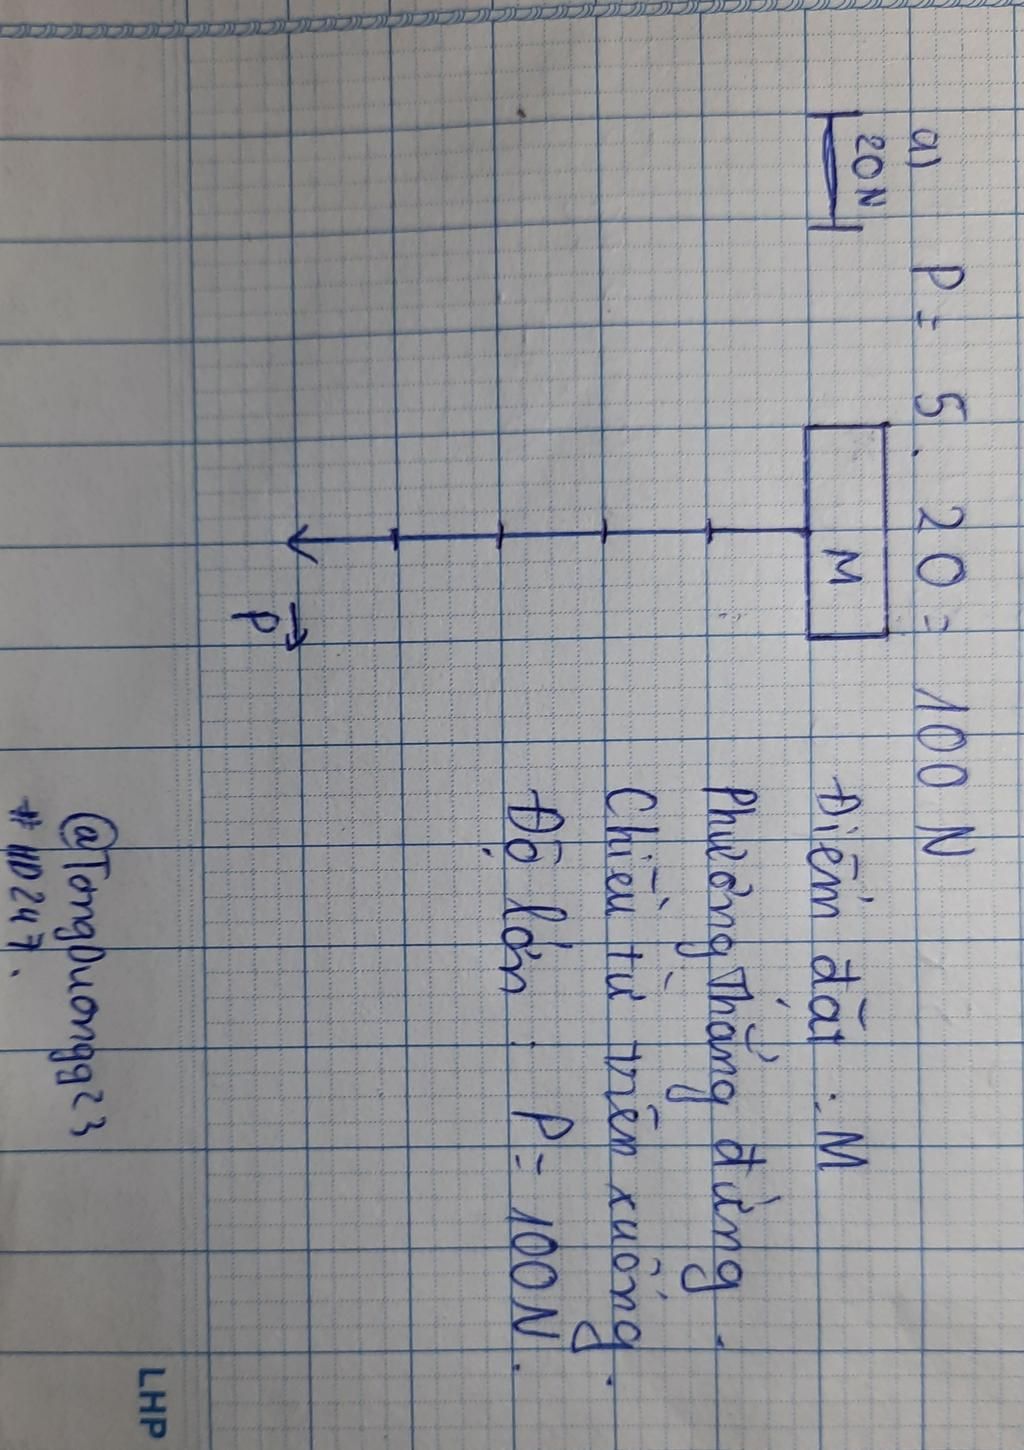 a) P = 5 . 20 = 100 N
20 N
M
Điểm đặt : M
Phương Thẳng đứng .
Chiều từ trên xuống .
Độ lớn : P = 100N .
P
@TongDuongg23
# HD247 .
LHP